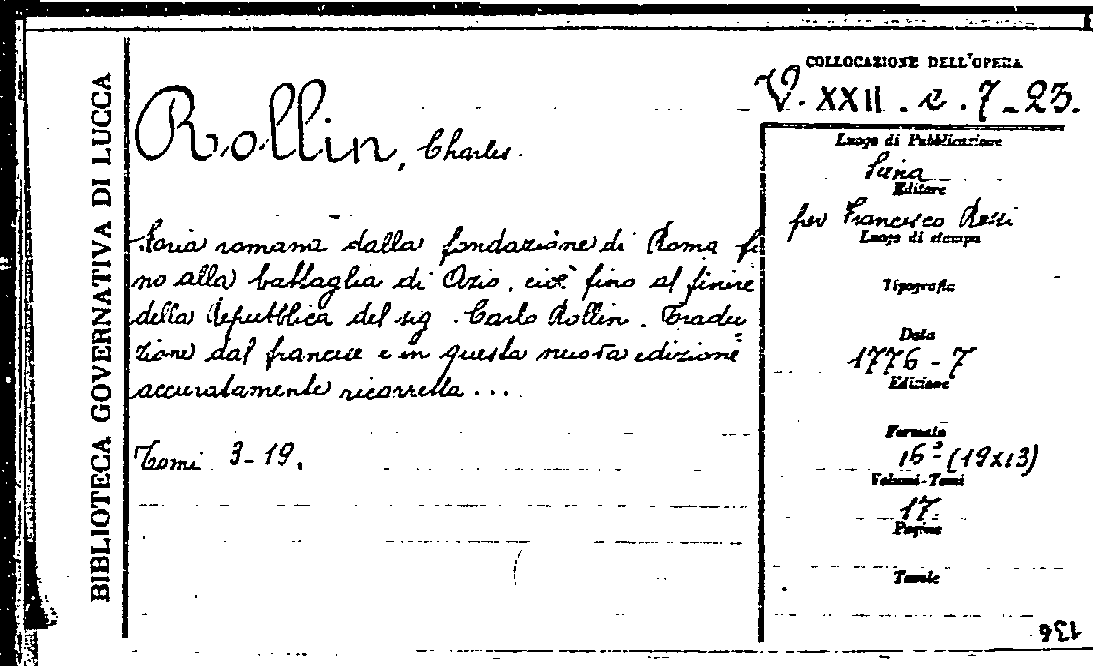 BIBLIOTECA GOVERNATIVA DI LUCCA
Rollin, Charles.
Storia romana dalla fondazione di Roma fi
no alla battaglia di Azio, cioè fino al finire
della Repubblica del sig. Carlo Rollin. Tradu
zione dal francese e in questa nuova edizione
accuratamente ricorretta ...
Tomi 3-19.
COLLOCAZIONE DELL'OPERA
V. XXII. c. 7-23.
Luogo di Pubblicazione
Siena
Editore
per Francesco Rossi
Luogo di stampa
Tipografia
Data
1776-7
Edizione
Formato
16º (19x13)
Volumi-Tomi
17
Pagine
Tavole
136